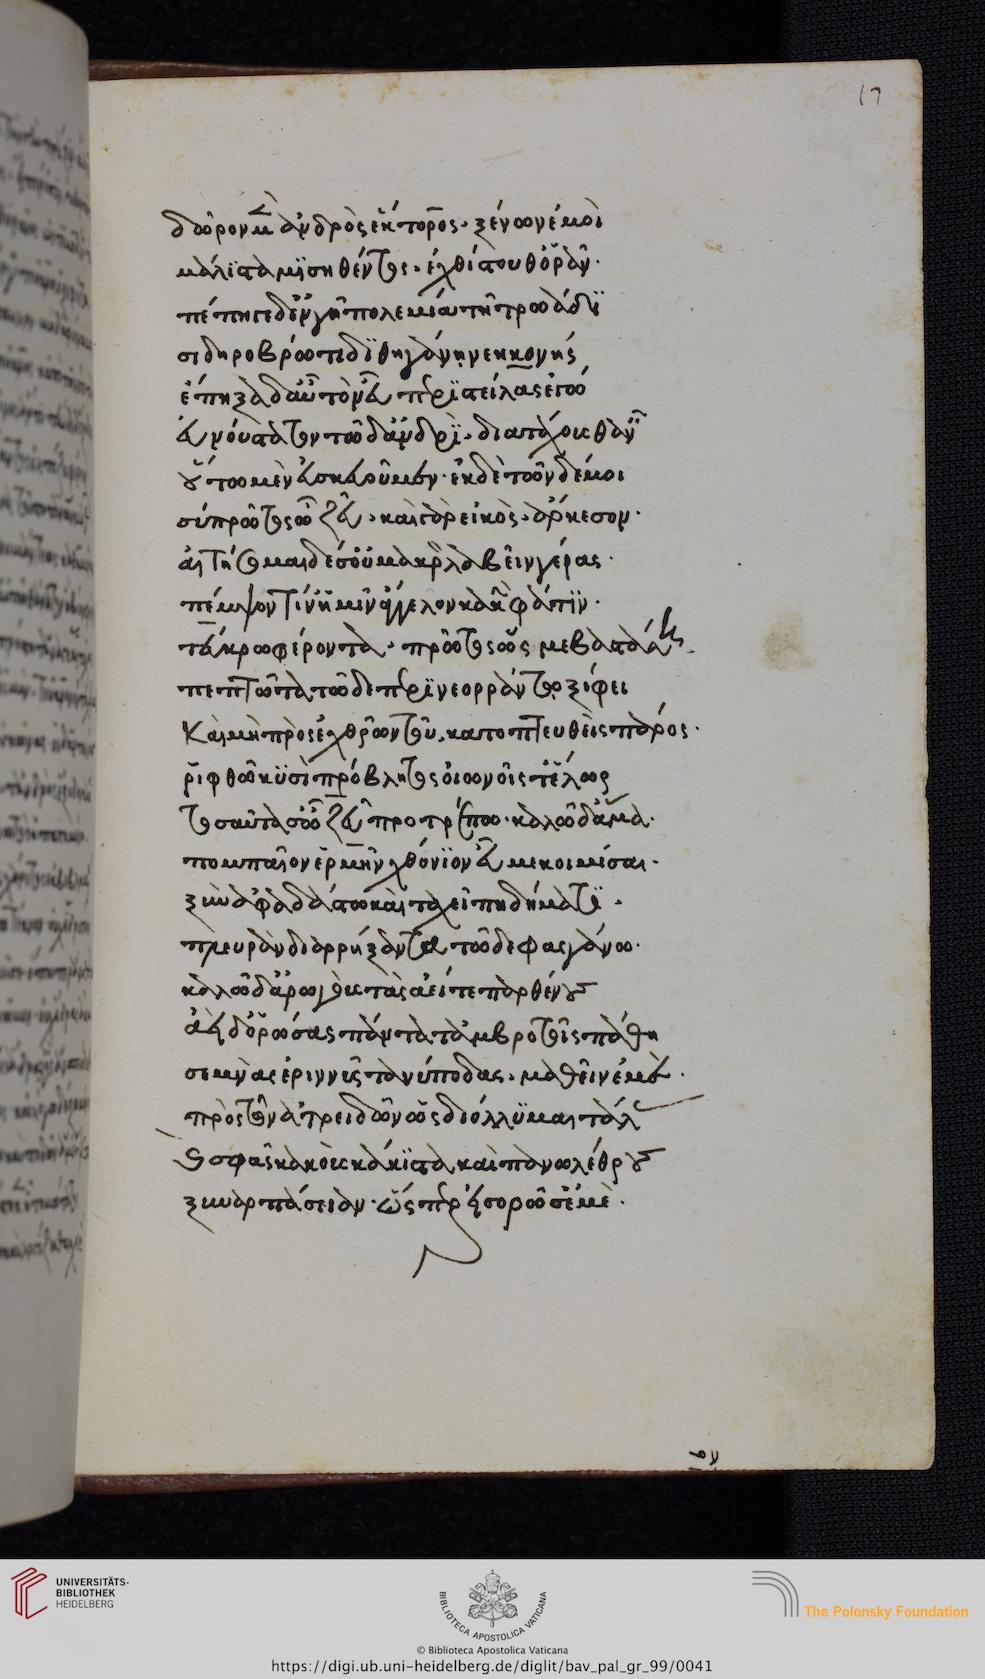 17
δῶρον μὲν ἀνδρὸς ἕκτορος. ξένων ἐμοὶ
μάλιστα μισηθέντος. ἐχθίστου θ' ὁρᾶν.
πέπηγε δ' ἐν γῆ πολεμία τῆ τρωάδι
σιδηροβρῶτι θηγάνη νεηκονής
ἔπηξα δ' αὐτὸν εὖ περιστείλας ἐγὼ
εὐνούστατον τῶδ' ἀνδρὶ. διὰ τάχους θανεῖν
οὕτω μὲν εὐσκευοῦμεν. ἐκ δὲ τῶνδέ μοι
σὺ πρῶτος ὦ ζεῦ. καὶ γὰρ εἰκὸς. ἄρκεσον.
αἰτήσομαι δέ σ' οὐ μακρὸν λαβεῖν γέρας.
πέμψον τίν' ἡμῖν ἄγγελον κακὴν φάτιν.
τεύκρω φέροντα. πρῶτος ὥς με βαστάση
πεπτῶτα τῶδε περὶ νεορράντω ξίφει
καὶ μὴ πρὸς ἐχθρῶν του κατοπτευθεὶς πάρος.
ῥιφθῶ κυσὶ πρόβλητος οἰωνοῖς θ' ἕλωρ
τοσαῦτά σ' ὦ ζεῦ προτρέπω. καλῶ δ' ἅμα.
πομπαῖον ἑρμῆν χθόνιον εὖ με κοιμίσαι.
ξὺν ἀσφαδάστω καὶ ταχεῖ πηδήματι.
πλευρὰν διαρρήξαντα τῶδε φασγάνω.
καλῶ δ' ἀρωγοὺς τὰς ἀεί τε παρθένους
ἀεὶ δ' ὁρώσας πάντα τἀν βροτοῖς πάθη
σεμνὰς ἐριννῦς τανύποδας. μαθεῖν ἐμὲ.
πρὸς τῶν ἀτρειδῶν ὡς διόλλυμαι τάλας
καὶ σφᾶς κακοὺς κάκιστα καὶ πανωλέθρους
ξυναρπάσειαν. ὥσπερ εἰσορῶσ' ἐμὲ.
UNIVERSITÄTS-
BIBLIOTHEK
HEIDELBERG
BIBLIOTECA APOSTOLICA VATICANA
The Polonsky Foundation
© Biblioteca Apostolica Vaticana
https://digi.ub.uni-heidelberg.de/diglit/bav_pal_gr_99/0041